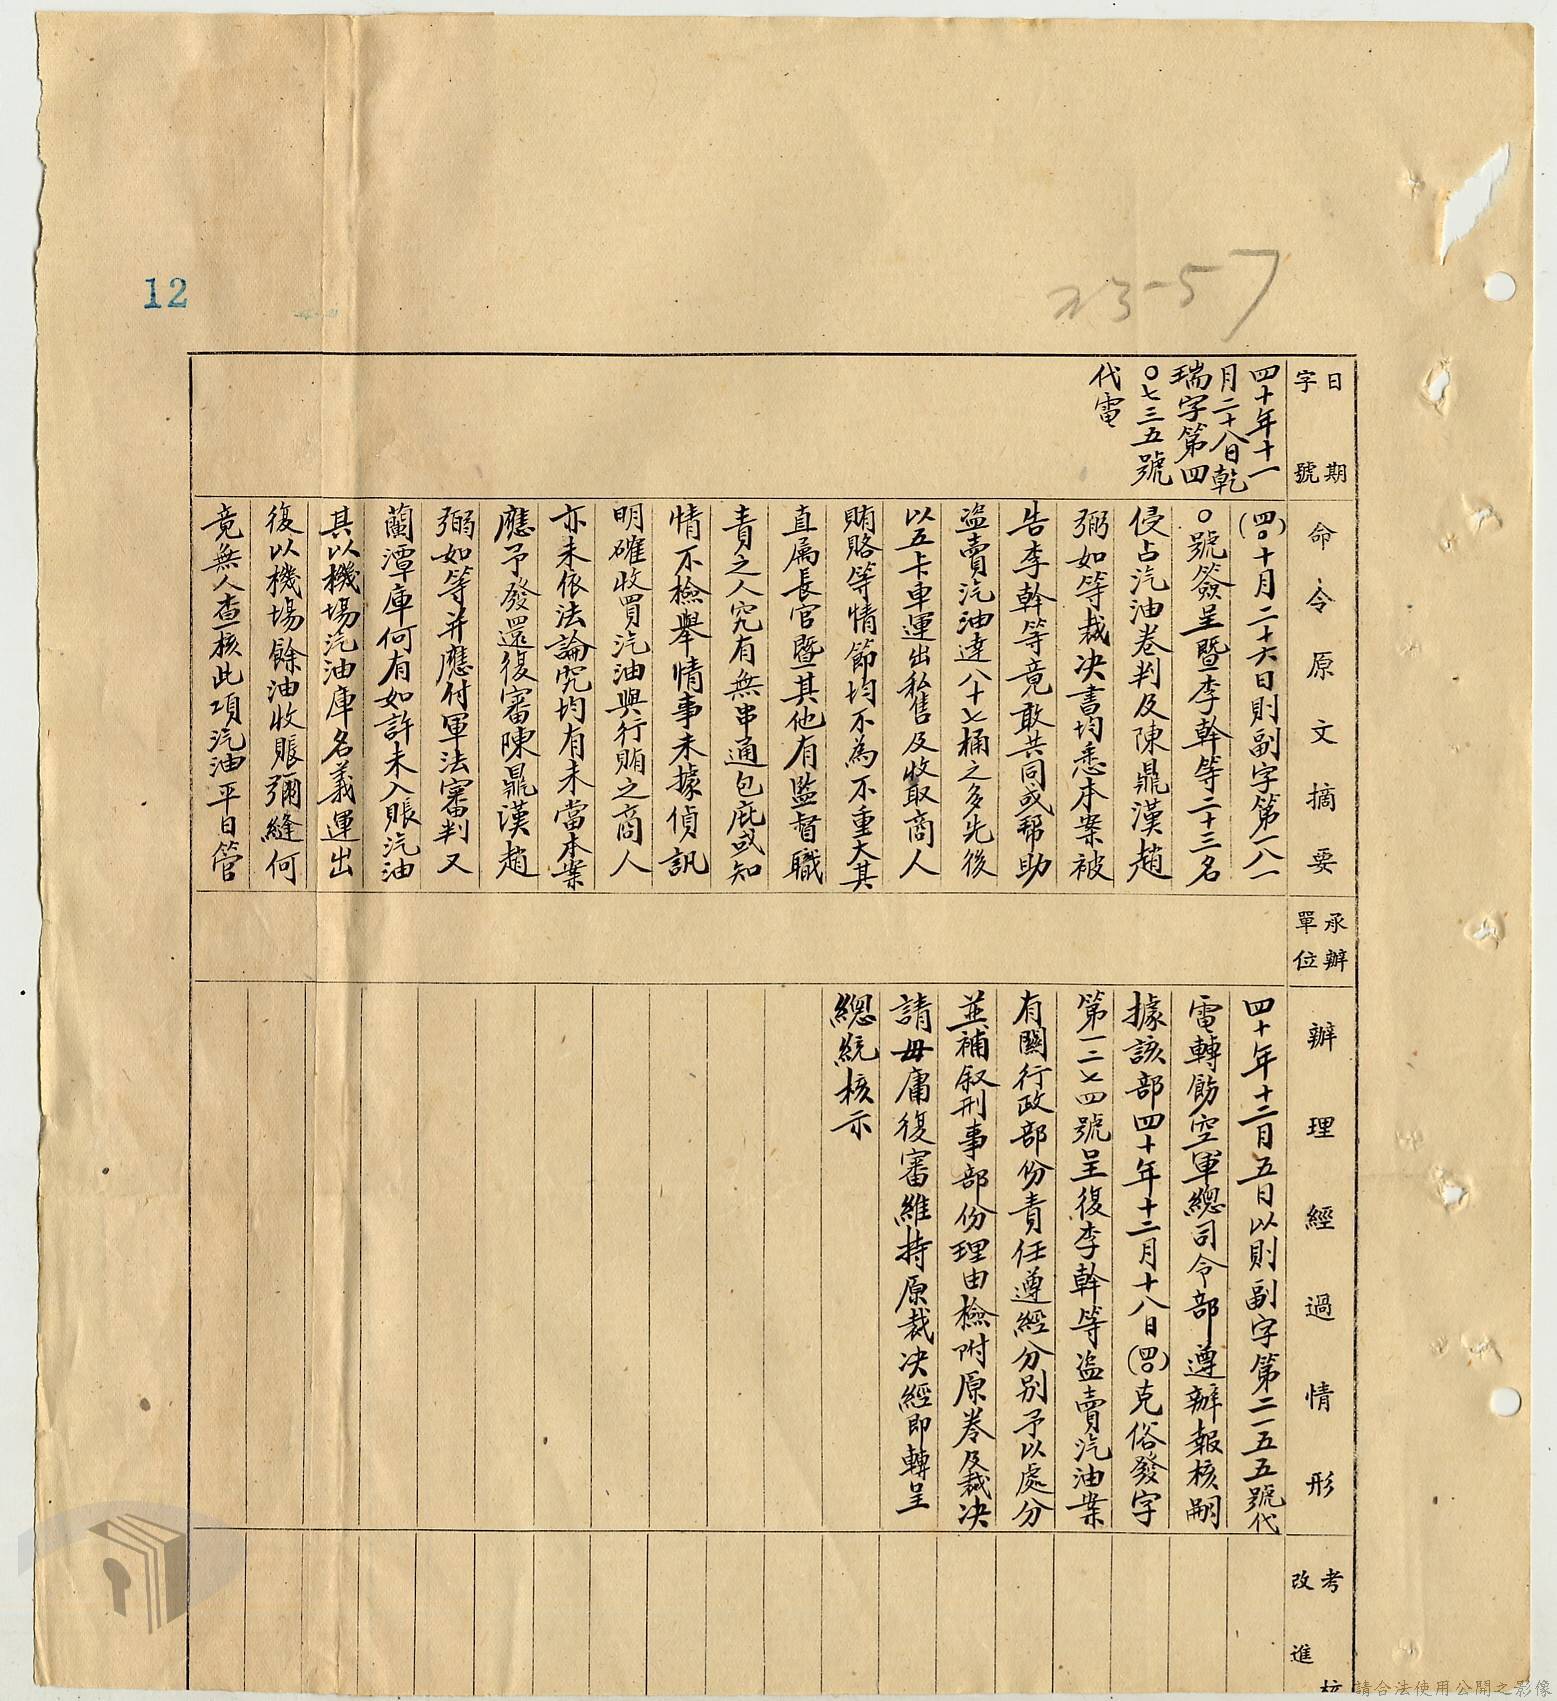 12
23-57
日期
字號
四十年十一
月二十八日乾
瑞字第四
〇七三五號
代電
命令原文摘要
(四〇)十月二十六日則副字第一八一
〇號簽呈暨李幹等二十三名
侵占汽油卷判及陳鼎漢趙
弼如等裁决書均悉本案被
告李幹等竟敢共同或幫助
盜賣汽油達八十七桶之多先後
以五卡車運出私售及收取商人
賄賂等情節均不為不重大其
直属長官暨其他有監督職
責之人究有無串通包庇或知
情不檢舉情事未據偵訊
明確收買汽油與行賄之商人
亦未依法論究均有未當本案
應予發還復審陳鼎漢趙
弼如等并應付軍法審判又
蘭潭庫何有如許未入賬汽油
其以機場汽油庫名義運出
復以機場餘油收賬彌縫何
竟無人查核此項汽油平日管
承辦
單位
辦理經過情形
四十年十二月五日以則副字第二一五五號代
電轉飭空軍總司令部遵辦報核嗣
據該部四十年十二月十八日(四〇)克俗發字
第一二七四號呈復李幹等盜賣汽油案
有關行政部份責任遵經分别予以處分
並補叙刑事部份理由檢附原卷及裁决
請毋庸復審維持原裁决經即轉呈
總統核示
考核
改進
請合法使用公開之影像